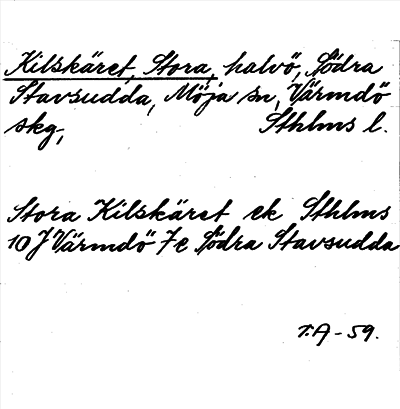 Kilskäret, Stora, halvö, Södra
Stavsudda, Möja sn, Värmdö
skg, Sthlms l.
Stora Kilskäret ek Sthlms
10 J Värmdö 7e Södra Stavsudda
T.A - 59.